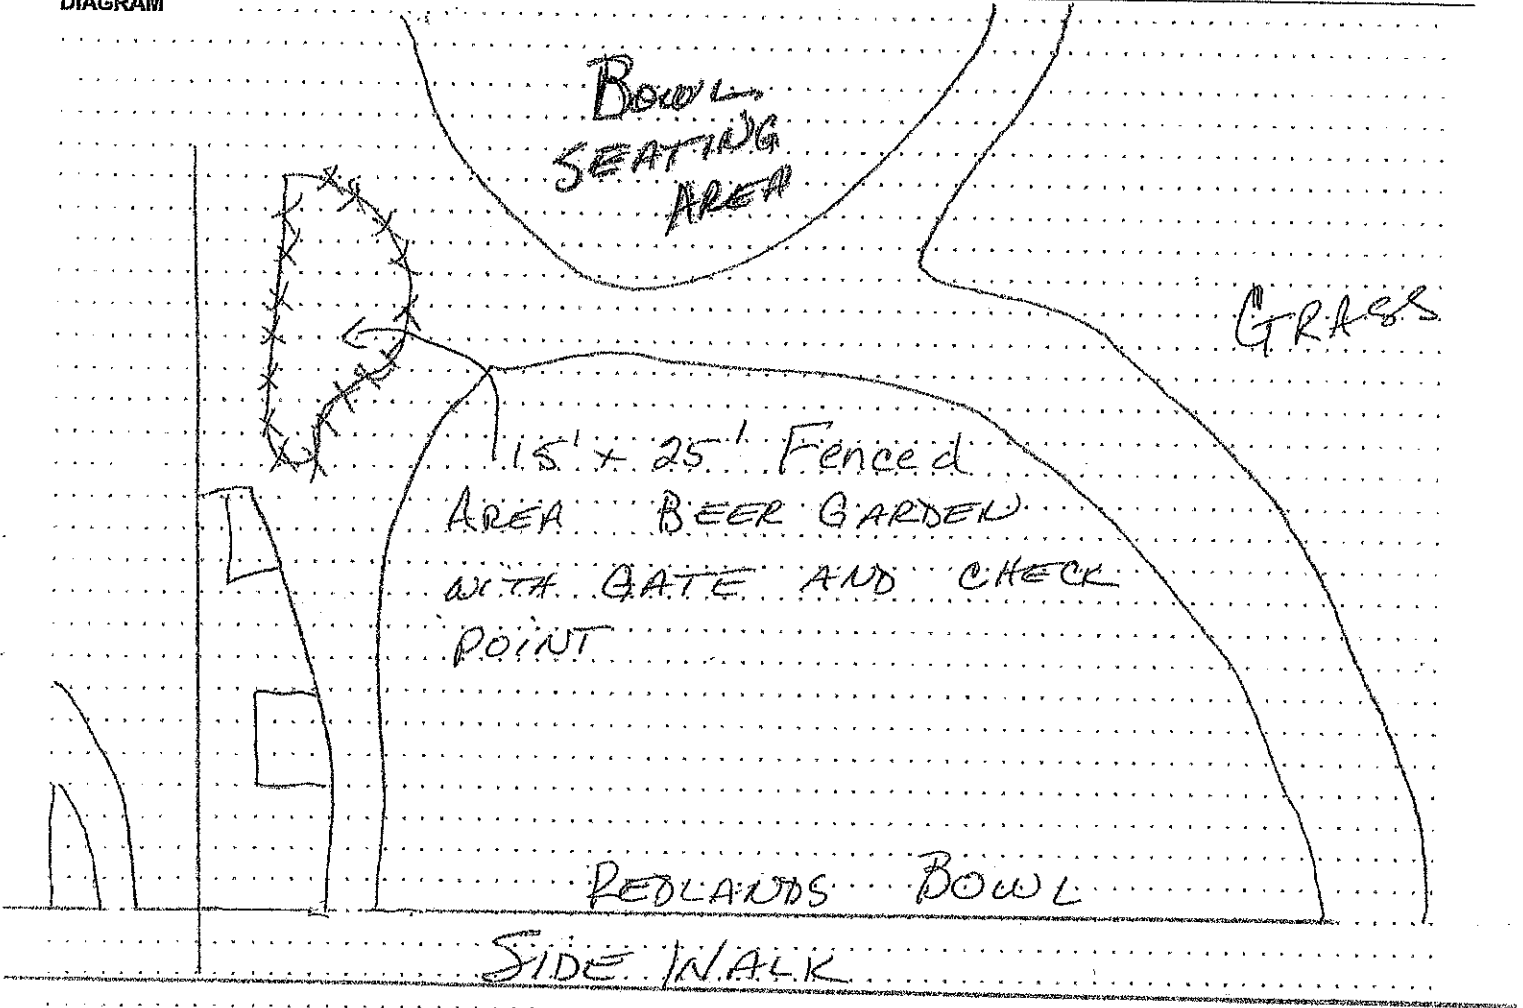 DIAGRAM
BOWL
SEATING
AREA
GRASS
15' x 25' Fenced
AREA BEER GARDEN
WITH GATE AND CHECK
POINT
REDLANDS BOWL
SIDE WALK